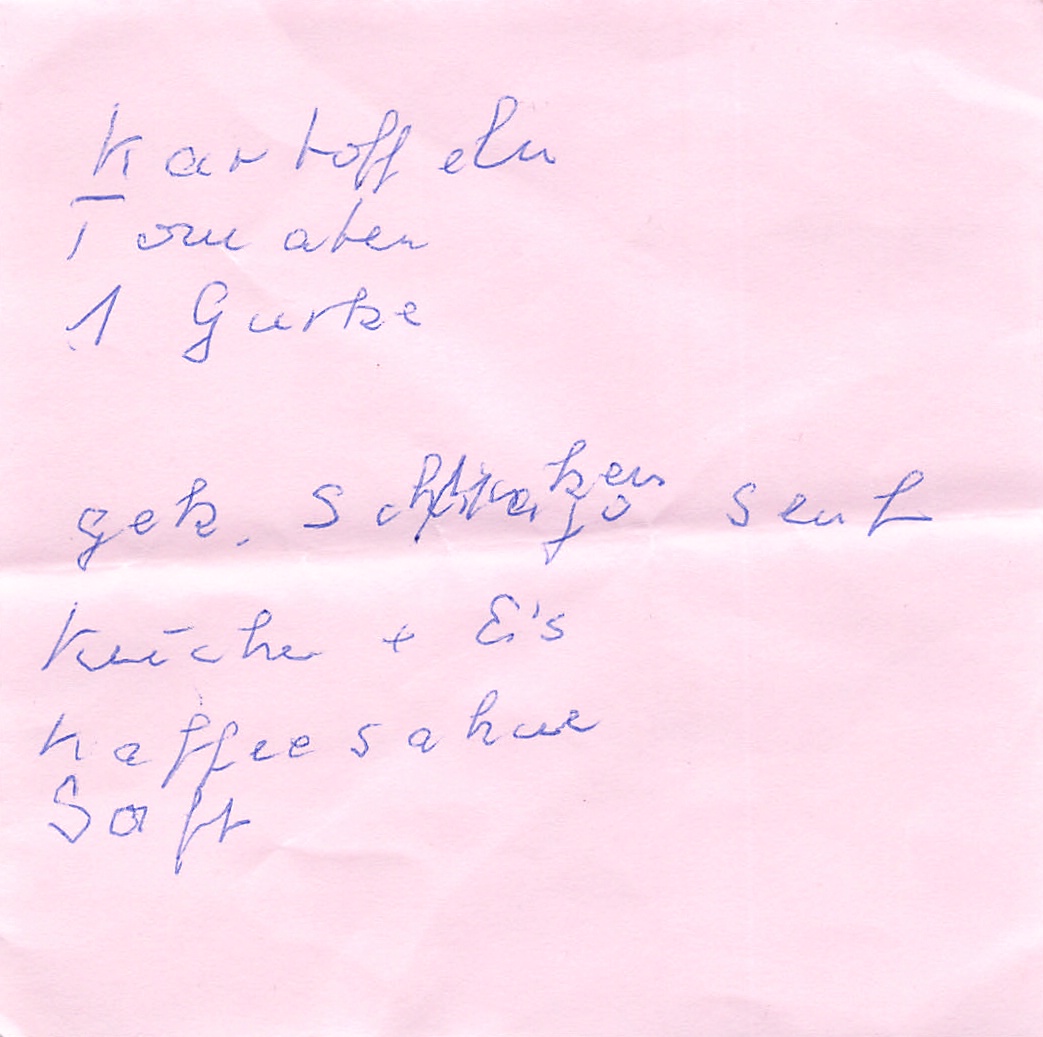 Kartoffeln
Tomaten
1 Gurke
gek. Senf
Kuchen + Eis
Kaffeesahne
Saft